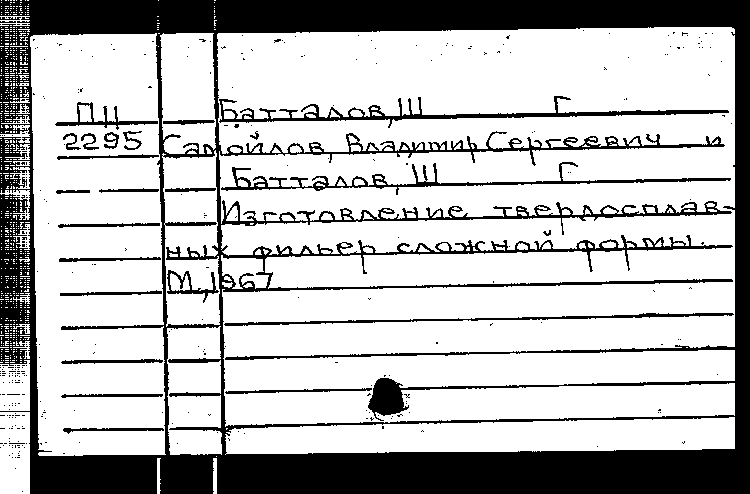 ПЦ Батталов, Ш Г
2295 Самойлов, Владимир Сергеевич и
Батталов, Ш Г
Изготовление твердосплав-
ных фильер сложной формы.
М., 1967